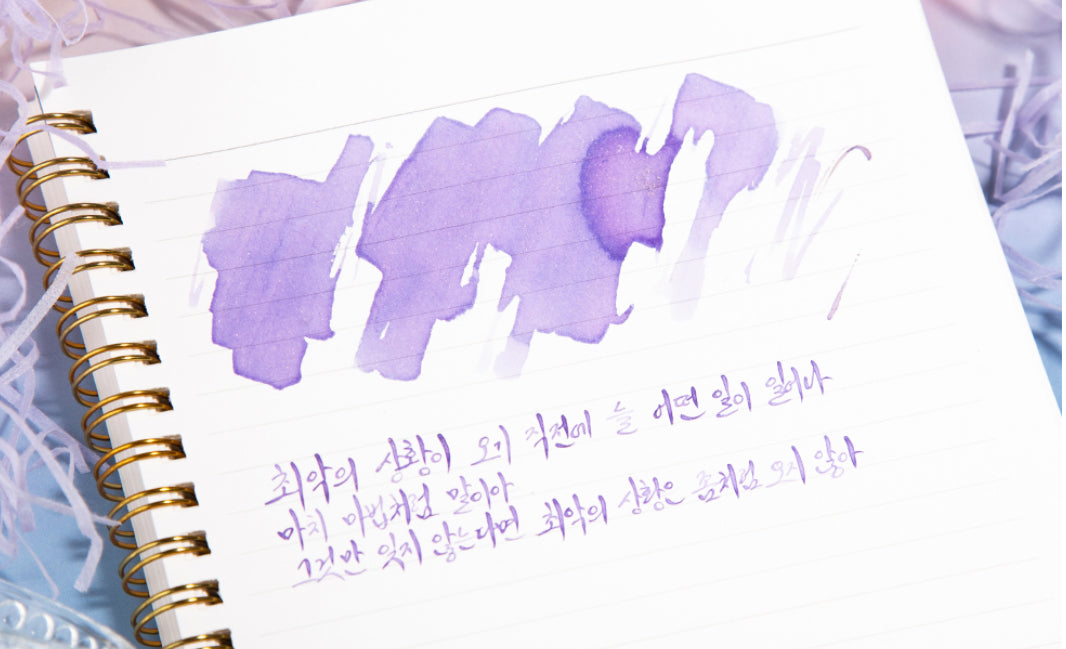 최악의 상황이 오기 직전에 늘 어떤 일이 일어나
마치 마법처럼 말이야
그것만 잊지 않는다면 최악의 상황은 좀처럼 오지 않아